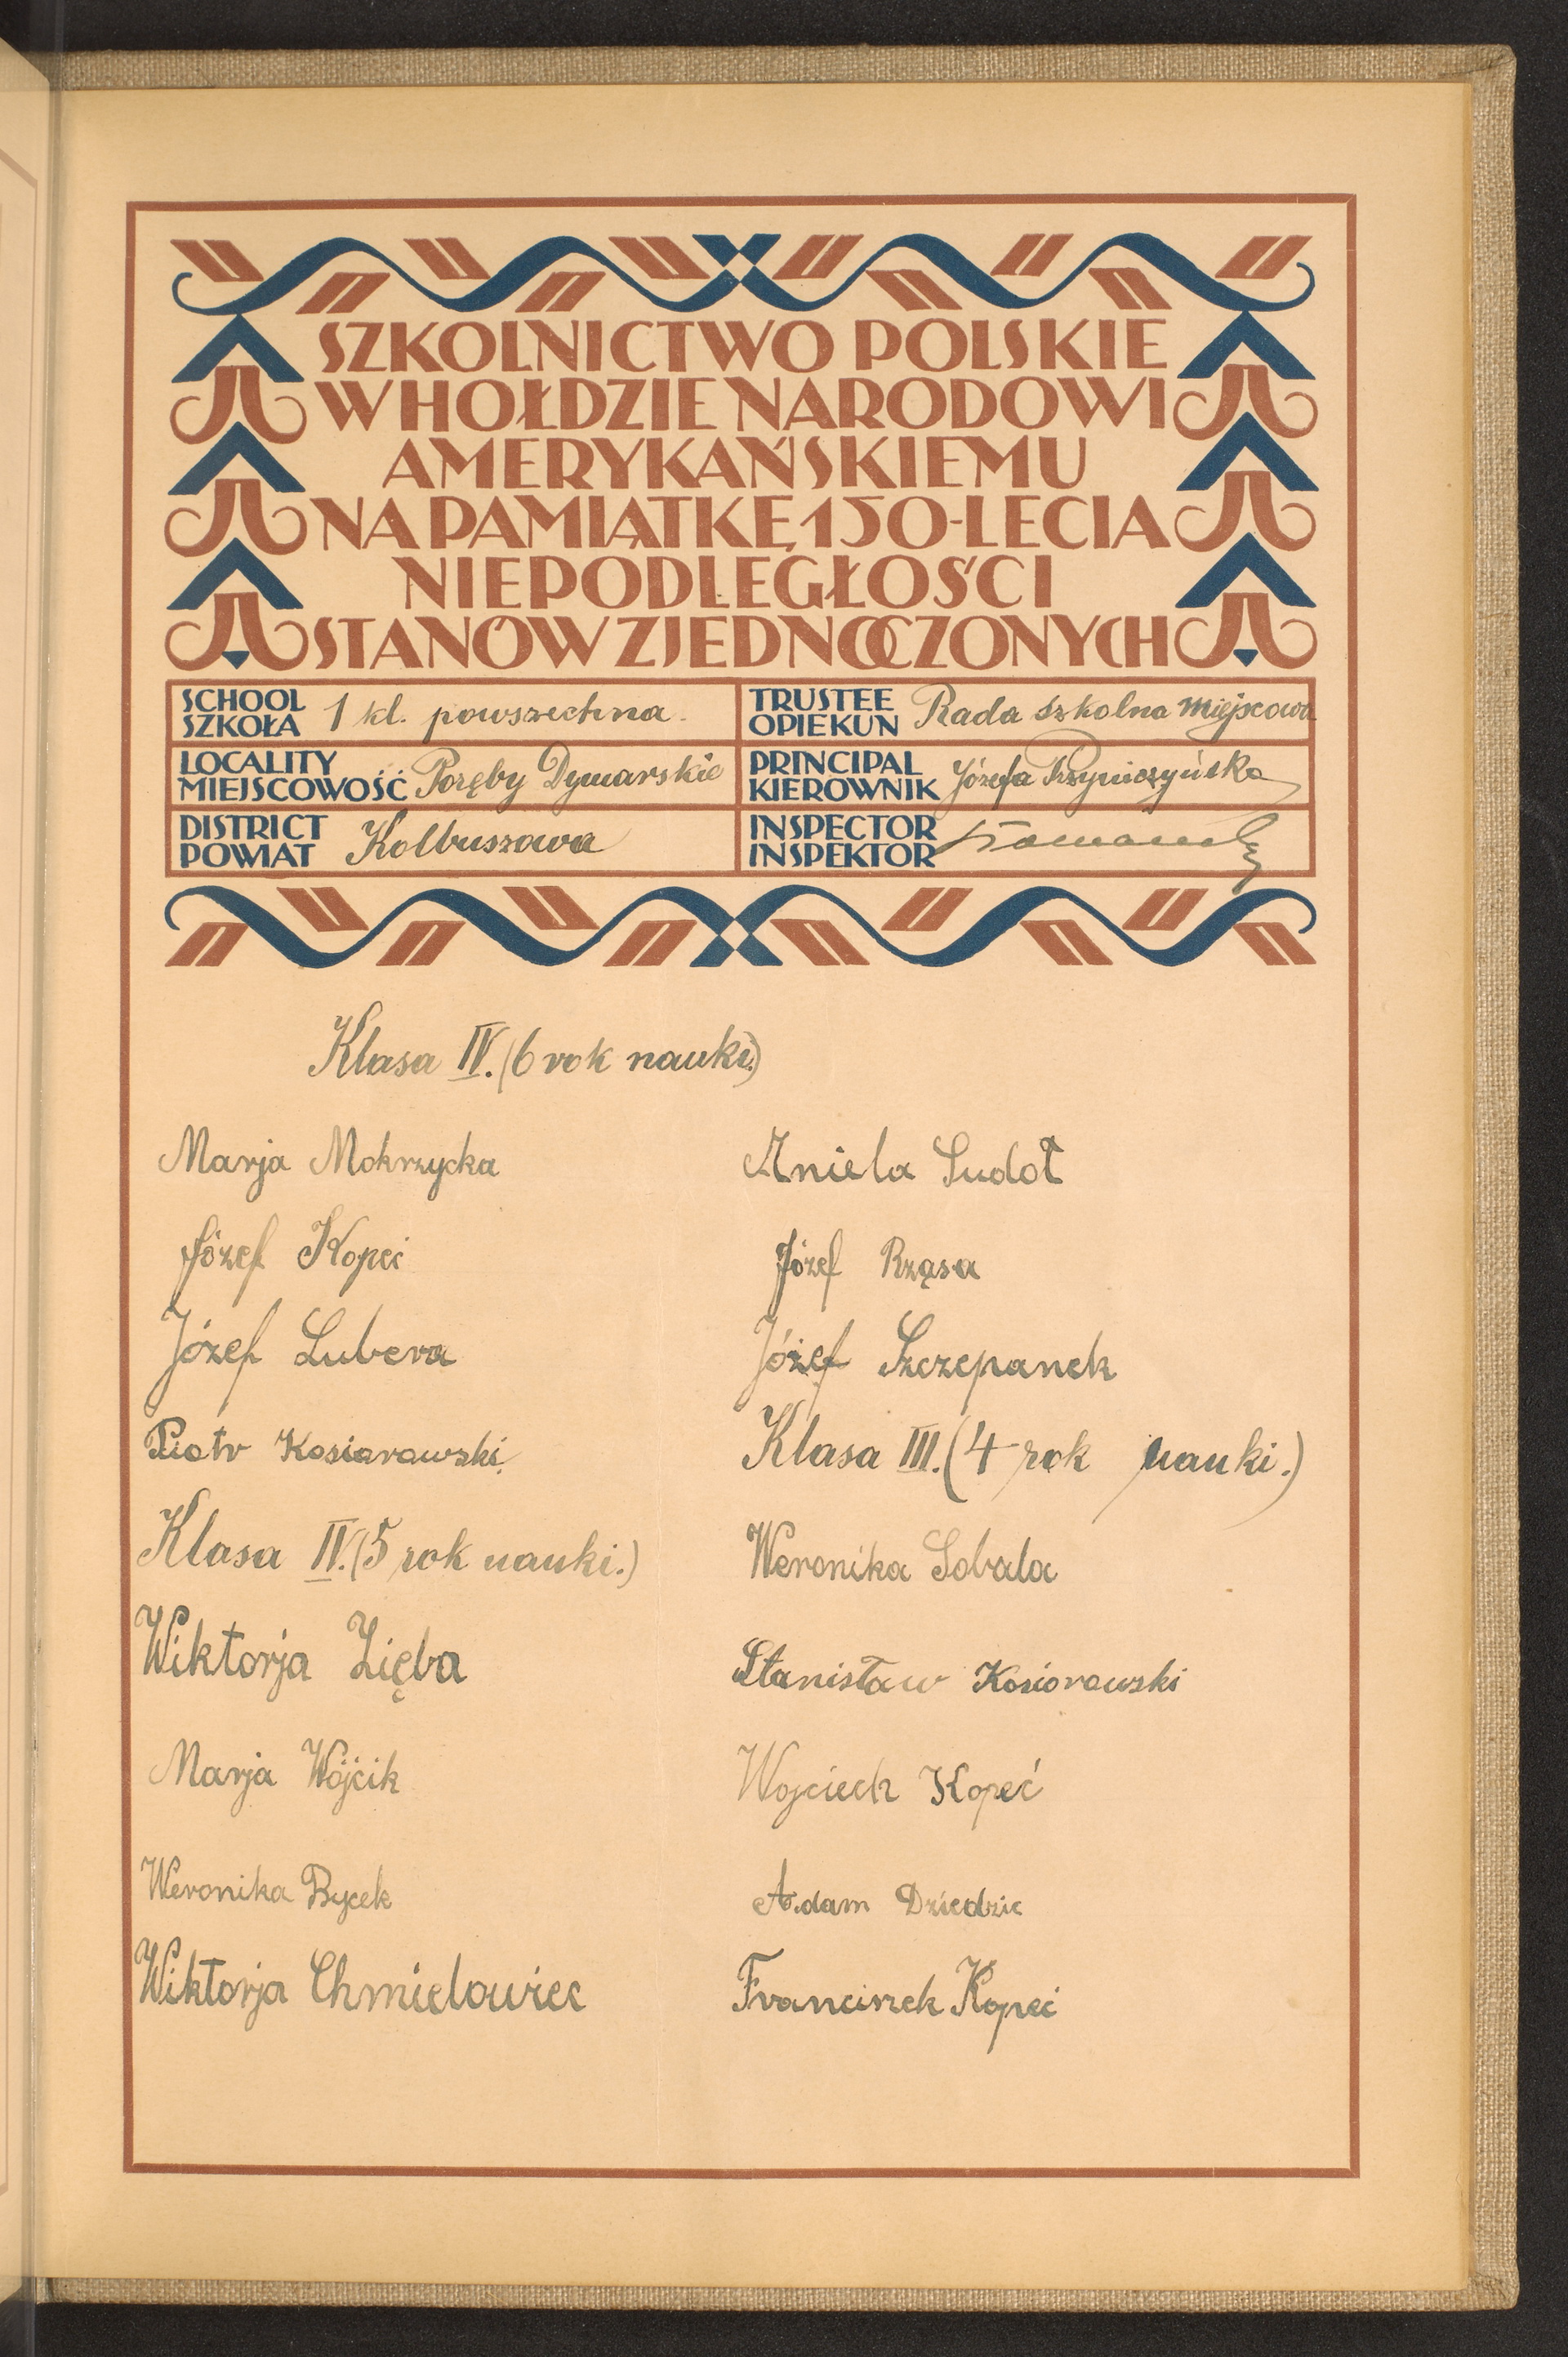 SZKOLNICTWO POLSKIE
W HOŁDZIE NARODOWI
AMERYKAŃSKIEMU
NA PAMIĄTKĘ 150-LECIA
NIEPODLEGŁOŚCI
STANÓW ZJEDNOCZONYCH
SCHOOL
SZKOŁA 1 kl. powszechna.
TRUSTEE
OPIEKUN Rada szkolna miejscowa
LOCALITY
MIEJSCOWOŚĆ Poręby Dymarskie
PRINCIPAL
KIEROWNIK Józefa
DISTRICT
POWIAT Kolbuszowa
INSPECTOR
INSPEKTOR
Klasa IV. (6 rok nauki.)
Marja Mokrzycka
Józef Kopeć
Józef Lubera
Piotr Kosiorowski
Klasa IV. (5 rok nauki.)
Wiktorja Zięba
Marja Wójcik
Weronika Bycek
Wiktorja Chmielowiec
Aniela Sudoł
Józef Rząsa
Józef Szczepanek
Klasa III. (4 rok nauki.)
Weronika Sobala
Stanisław Kosiorowski
Wojciech Kopeć
Adam Dziedzic
Franciszek Kopeć